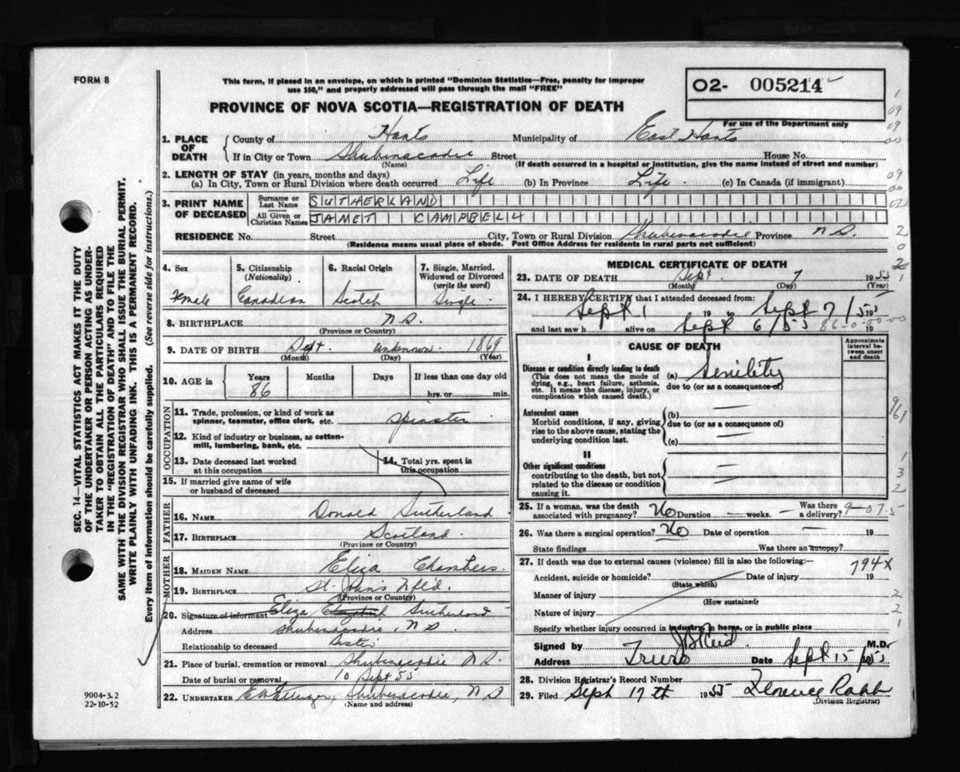 FORM 8
This form, if placed in an envelope, on which is printed "Dominion Statistics—Free, penalty for improper
use $50," and properly addressed will pass through the mail "FREE"
02- 005214
For use of the Department only
PROVINCE OF NOVA SCOTIA—REGISTRATION OF DEATH
1. PLACE OF DEATH
County of Hants Municipality of East Hants
If in City or Town Shubenacadie Street House No.
(Name) (If death occurred in a hospital or institution, give the name instead of street and number)
2. LENGTH OF STAY (in years, months and days)
(a) In City, Town or Rural Division where death occurred Life (b) In Province Life. (c) In Canada (if immigrant)
3. PRINT NAME OF DECEASED
Surname or Last Name SUTHERLAND
All Given or Christian Names JANET CAMPBELL
RESIDENCE No. Street City, Town or Rural Division Shubenacadie Province N.S.
(Residence means usual place of abode. Post Office Address for residents in rural parts not sufficient)
4. Sex Female
5. Citizenship (Nationality) Canadian
6. Racial Origin Scotch
7. Single, Married, Widowed or Divorced (write the word) Single.
8. BIRTHPLACE N.S.
(Province or Country)
9. DATE OF BIRTH Sept. unknown 1869
(Month) (Day) (Year)
10. AGE in Years 86 Months Days If less than one day old
hrs. or min.
OCCUPATION
11. Trade, profession, or kind of work as spinner, teamster, office clerk, etc. Spinster
12. Kind of industry or business, as cotton-mill, lumbering, bank, etc.
13. Date deceased last worked at this occupation
14. Total yrs. spent in this occupation
15. If married give name of wife or husband of deceased
FATHER
16. NAME Donald Sutherland
17. BIRTHPLACE Scotland
(Province or Country)
MOTHER
18. MAIDEN NAME Eliza Chambers.
19. BIRTHPLACE St. John's Nfl'd.
(Province or Country)
20. Signature of informant Eliza Sutherland
Address Shubenacadie, N S.
Relationship to deceased Sister
21. Place of burial, cremation or removal Shubenacadie N.S.
Date of burial or removal 10 Sept 55
22. UNDERTAKER Shubenacadie, N S
(Name and address)
MEDICAL CERTIFICATE OF DEATH
23. DATE OF DEATH Sept. 7 1955
(Month) (Day) (Year)
24. I HEREBY CERTIFY that I attended deceased from:
Sept 1 19 to Sept 7/55 19
and last saw h alive on Sept 6/55 19
86-0-00-00
CAUSE OF DEATH
Approximate interval between onset and death
I
Disease or condition directly leading to death
(This does not mean the mode of dying, e.g., heart failure, asthenia, etc. It means the disease, injury, or complication which caused death.)
(a) Senility
due to (or as a consequence of)
Antecedent causes
Morbid conditions, if any, giving rise to the above cause, stating the underlying condition last.
(b) —
due to (or as a consequence of)
(c) —
II
Other significant conditions
contributing to the death, but not related to the disease or condition causing it.
25. If a woman, was the death associated with pregnancy? No Duration — weeks. — Was there a delivery?
26. Was there a surgical operation? No Date of operation — 19
State findings — Was there an autopsy? —
27. If death was due to external causes (violence) fill in also the following: 794X
Accident, suicide or homicide? Date of injury 19
(State which)
Manner of injury
(How sustained)
Nature of injury
Specify whether injury occurred in industry, in home, or in public place
Signed by J B Reid M.D.
Address Truro Date Sept 15 1955
28. Division Registrar's Record Number
29. Filed Sept 17th 1955 Florence Rabb
(Division Registrar)
SEC. 14—VITAL STATISTICS ACT MAKES IT THE DUTY
OF THE UNDERTAKER OR PERSON ACTING AS UNDER-
TAKER TO OBTAIN ALL THE PARTICULARS REQUIRED
IN THE "REGISTRATION OF DEATH" AND TO FILE THE
SAME WITH THE DIVISION REGISTRAR WHO SHALL ISSUE THE BURIAL PERMIT.
WRITE PLAINLY WITH UNFADING INK. THIS IS A PERMANENT RECORD.
Every item of information should be carefully supplied. (See reverse side for instructions.)
9004-3.2
22-10-52